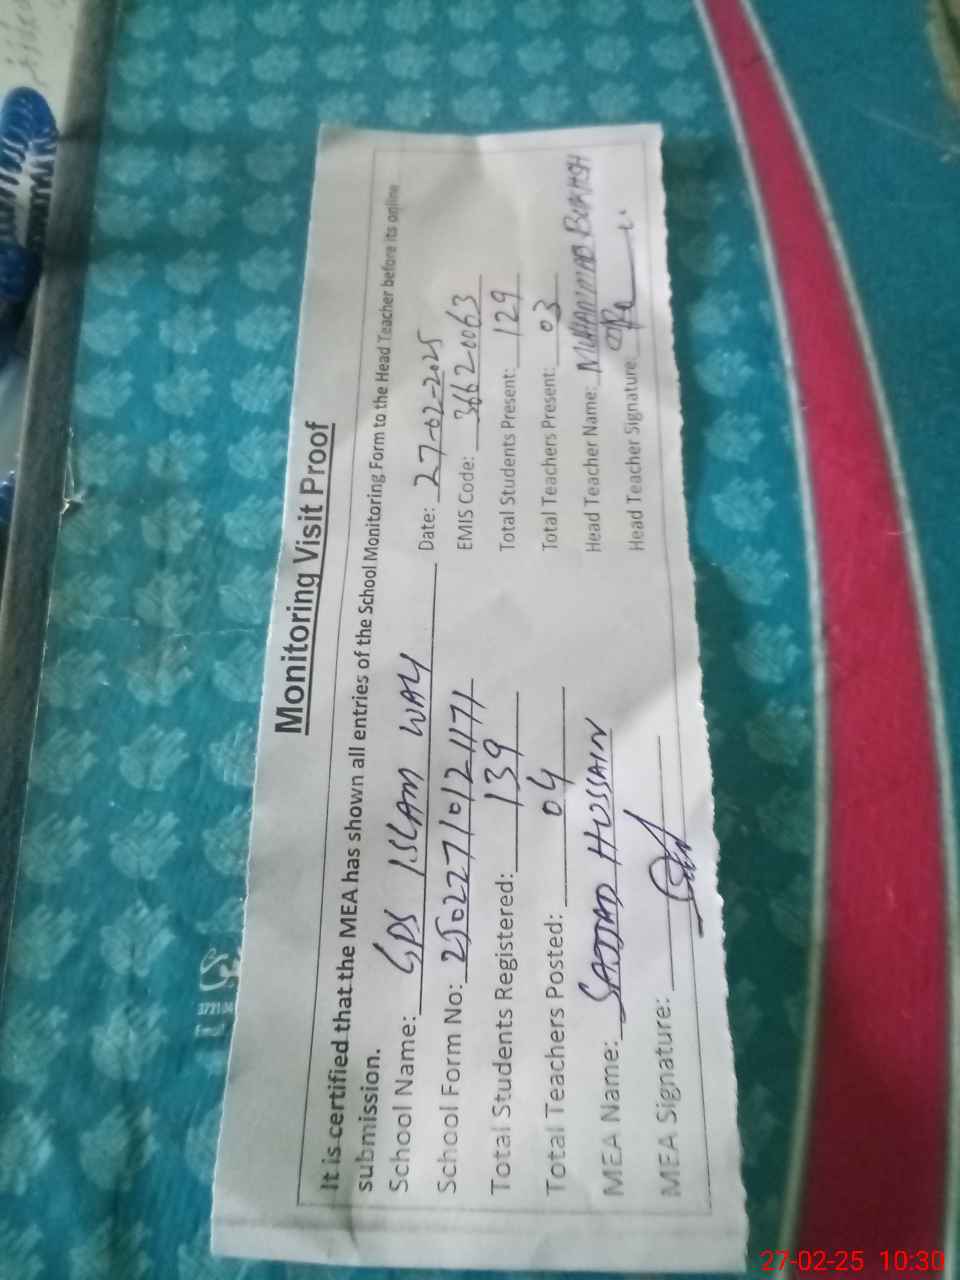 Monitoring Visit Proof
It is certified that the MEA has shown all entries of the School Monitoring Form to the Head Teacher before its online
submission.
School Name: GPS ISLAM WAH Date: 27-02-2025
School Form No: 25022710121171 EMIS Code: 36620063
Total Students Registered: 139 Total Students Present: 129
Total Teachers Posted: 04 Total Teachers Present: 03
MEA Name: SAJJAD HUSSAIN Head Teacher Name: MUHAMMAD BUKHSH
MEA Signature: Head Teacher Signature:
27-02-25 10:30